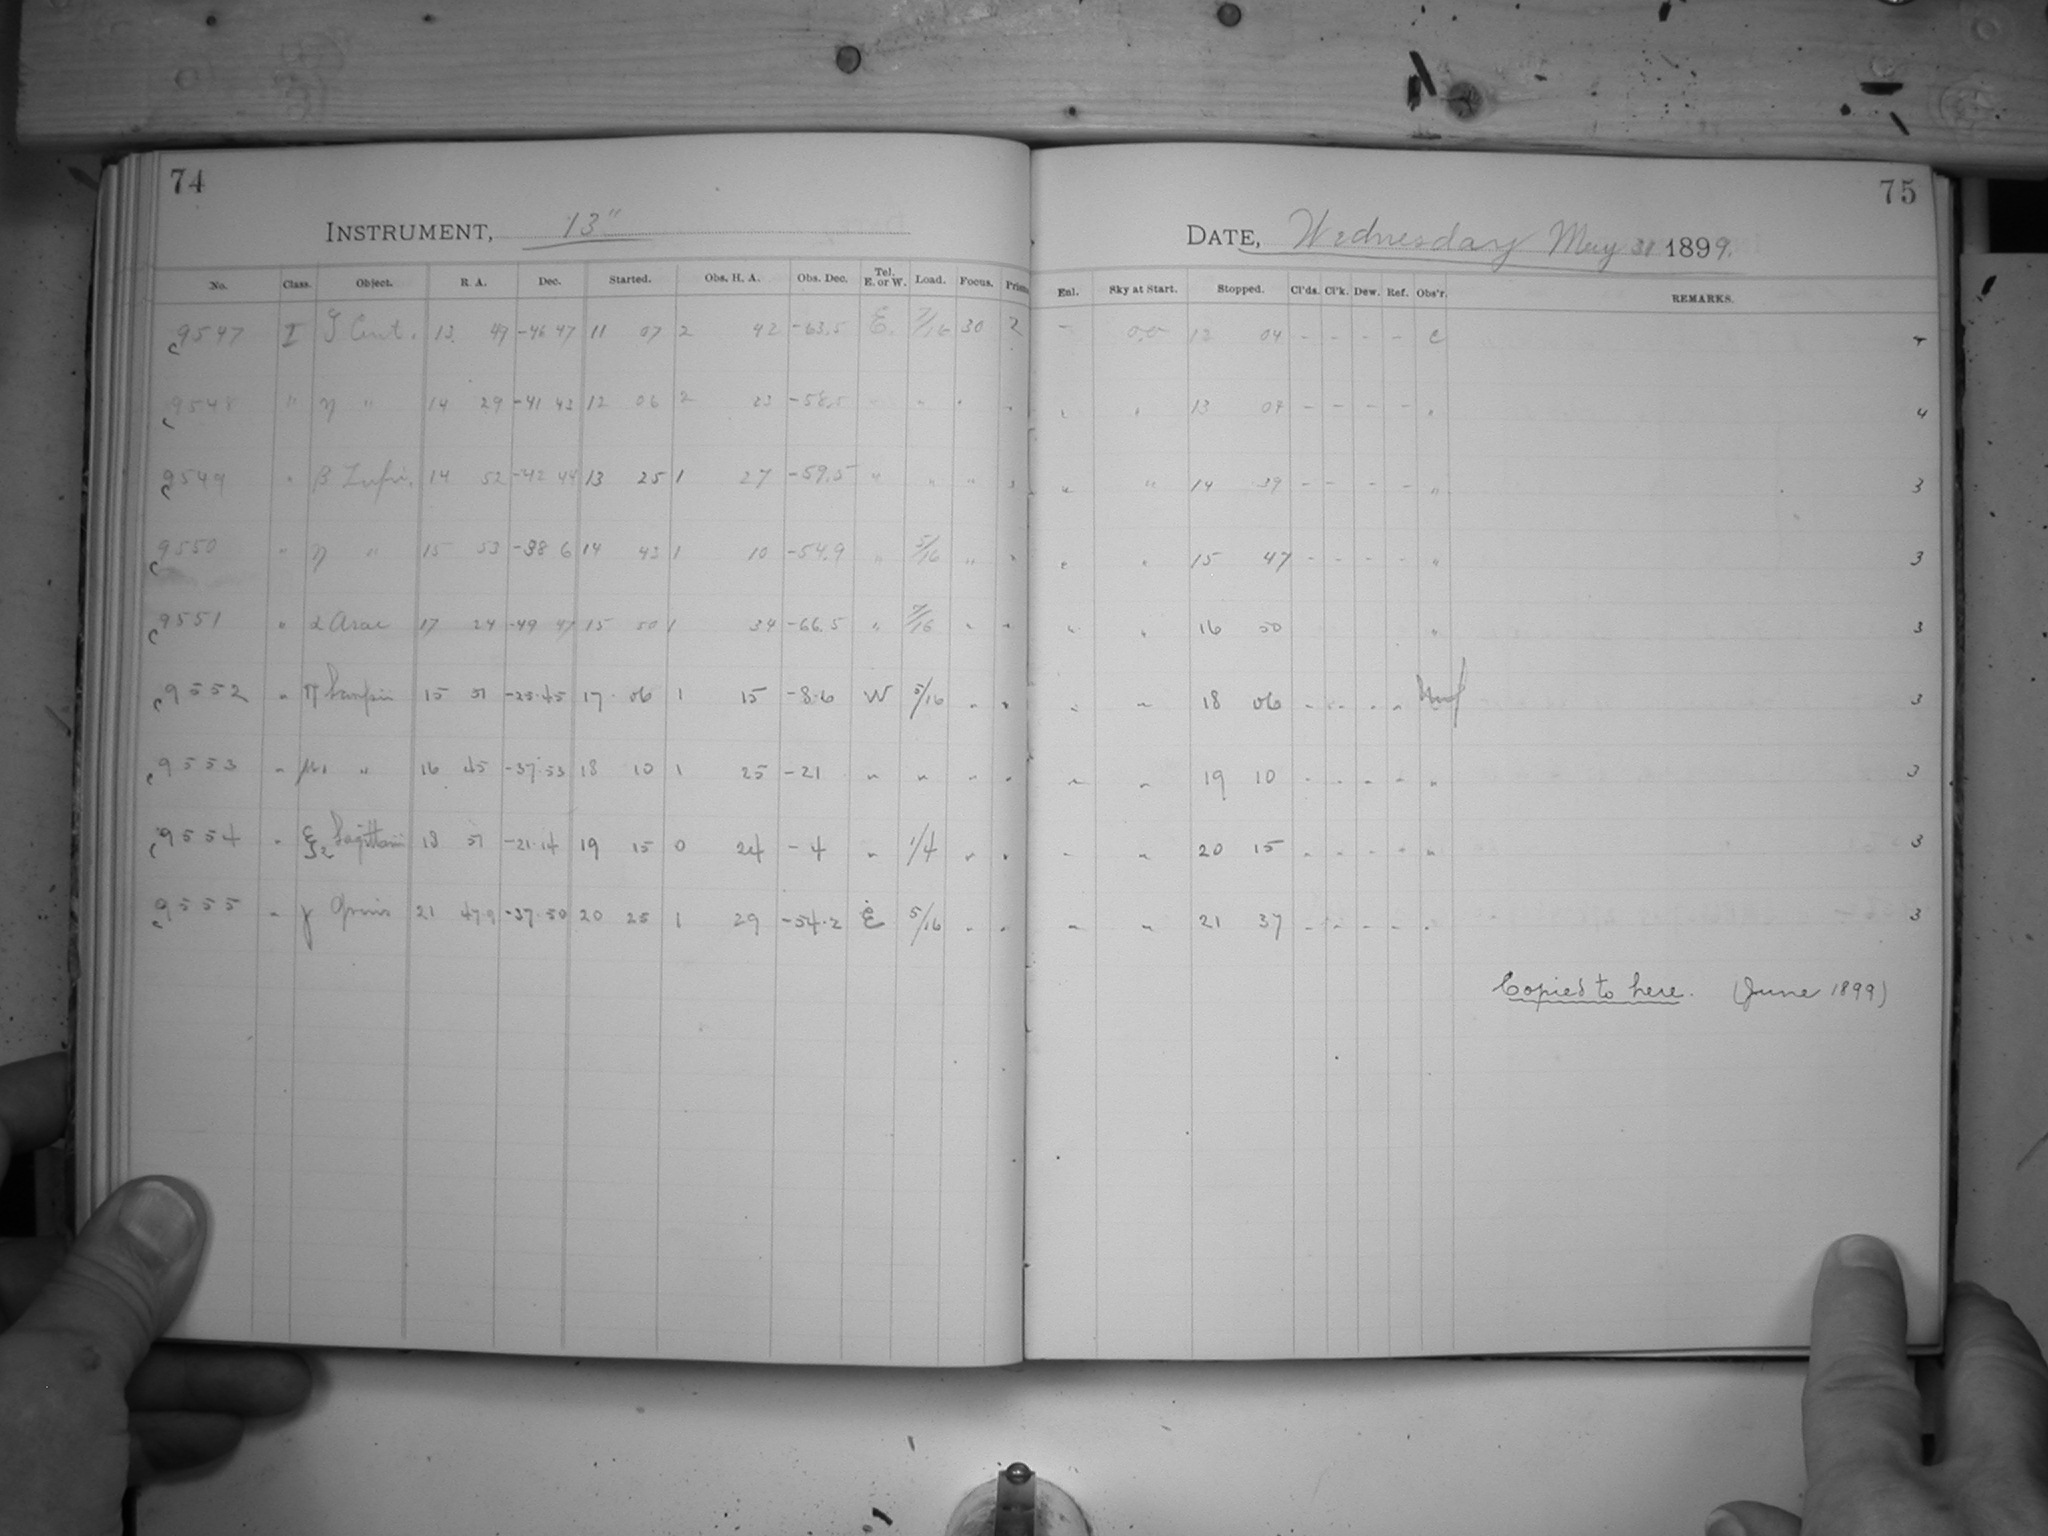 74
INSTRUMENT, 13"
No. Class. Object. R. A. Dec. Started. Obs. H. A. Obs. Dec. Tel. E. or W. Load. Focus. Prism
c9547 I ζ Cent. 13 49 -46 47 11 07 2 42 -63.5 E. 7/16 30 2
c9548 " η " 14 29 -41 43 12 06 2 23 -58.5 " " " "
c9549 " β Lupi. 14 52 -42 44 13 25 1 27 -59.5 " " " "
c9550 " η " 15 53 -38 6 14 43 1 10 -54.9 " 5/16 " "
c9551 " α Arae 17 24 -49 47 15 50 1 34 -66.5 " 7/16 " "
c9552 " π Scorpii 15 51 -25.45 17 06 1 15 -8.6 W 5/16 " "
c9553 " μ1 " 16 45 -37.53 18 10 1 25 -21 " " " "
c9554 " ξ2 Sagittarii 18 51 -21.14 19 15 0 24 -4 " 1/4 " "
c9555 " γ Gruis 21 47.9 -37.50 20 25 1 29 -54.2 E 5/16 " "
75
DATE, Wednesday May 31 1899.
Enl. Sky at Start. Stopped. Cl'ds. Cl'k. Dew. Ref. Obs'r. REMARKS.
- 12 04 - - - - C
" " 13 09 - - - - " 4
" " 14 39 - - - - " 3
" " 15 47 - - - - " 3
" " 16 50 " 3
" " 18 06 - - - - 3
" " 19 10 - - - - " 3
" " 20 15 - - - - " 3
" " 21 37 - - - - " 3
Copied to here. (June 1899)